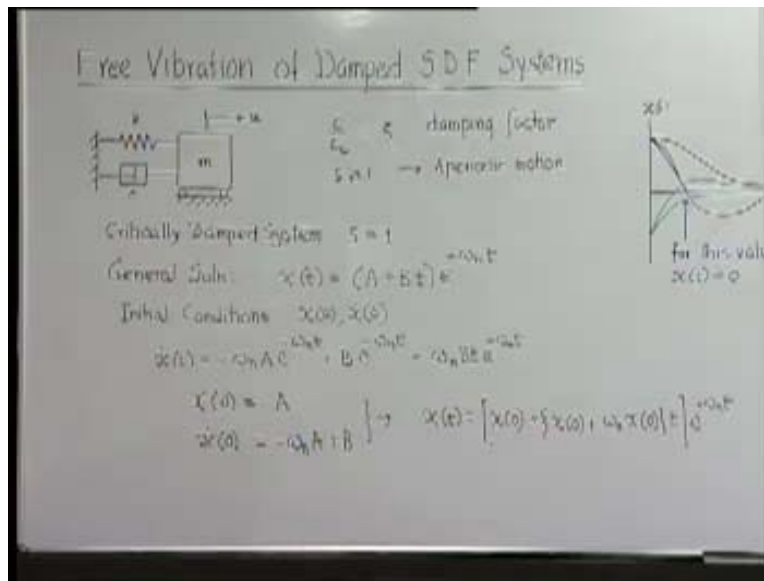 Free Vibration of Damped SDF Systems
k
m
damping factor
ζ ≥ 1 → Aperiodic motion
Critically Damped System ζ = 1
General Soln: x(t) = (A + Bt) e^{-ωₙt}
Initial Conditions x(0), ẋ(0)
ẋ(t) = -ωₙ A e^{-ωₙt} + B e^{-ωₙt} - ωₙ Bt e^{-ωₙt}
x(0) = A
ẋ(0) = -ωₙA + B
} → x(t) = [x(0) + {ẋ(0) + ωₙ x(0)} t] e^{-ωₙt}
for this
x(t) = 0